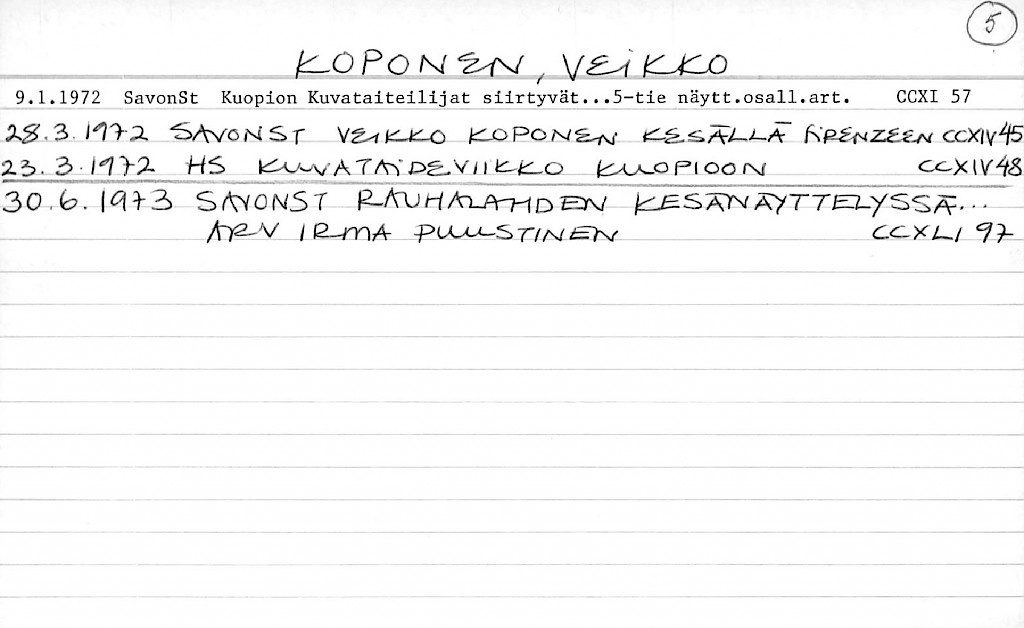 5
KOPONEN, VEIKKO
9.1.1972 SavonSt Kuopion Kuvataiteilijat siirtyvät...5-tie näytt.osall.art. CCXI 57
28.3.1972 SAVONST VEIKKO KOPONEN KESÄLLÄ FIRENZEEN CCXIV 45
23.3.1972 HS KUVATAIDEVIIKKO KUOPIOON CCXIV 48
30.6.1973 SAVONST RAUHALAHDEN KESÄNÄYTTELYSSÄ...
ARV IRMA PUUSTINEN CCXLI 97